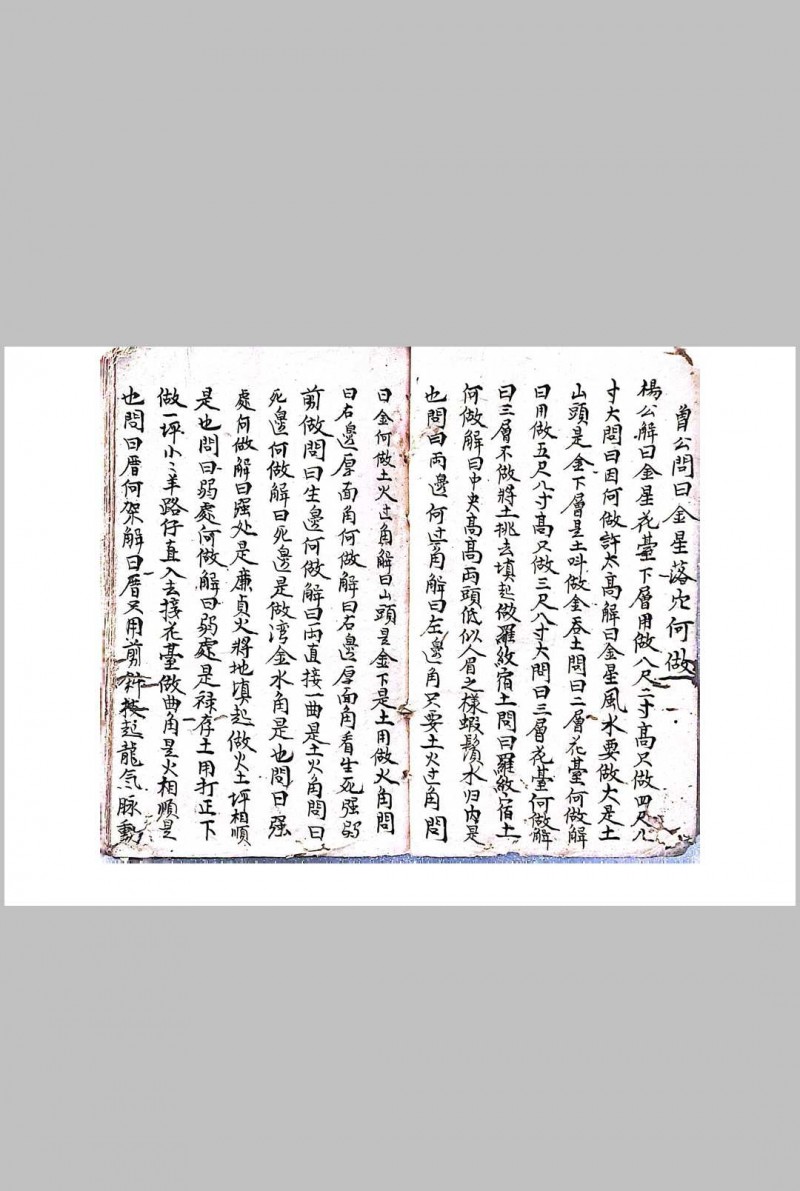 曾公問曰金星落穴何做
楊公解曰金星花臺下層用做八尺二寸高只做四尺八
寸大問曰因何做許太高解曰金星風水要做大是土
山頭是金下層是土叫做金吞土問曰二層花臺何做解
曰用做五尺八寸高只做三尺八寸大問曰三層花臺何做解
曰三層不做將土挑去填起做羅紋宿土問曰羅紋宿土
何做解曰中央高高兩頭低似人眉之樣蝦鬚水归内是
也問曰兩邊何过角解曰左邊角只要土火过角問
曰金何做土火过角解曰山頭是金下是土用做火角問
曰右邊厚面角何做解曰右邊厚面角看生死强弱
前做問曰生邊何做解曰両直接一曲是土火角問曰
死邊何做解曰死邊是做湾金水角是也問曰强
處何做解曰强处是廉貞火將地填起做火土坪相順
是也問曰弱處何做解曰弱處是禄存土用打正下
做一坪小〻羊路仔直入去接花臺做曲角是火相順是
也問曰厝何架解曰厝又用剪 接起龍気脉動